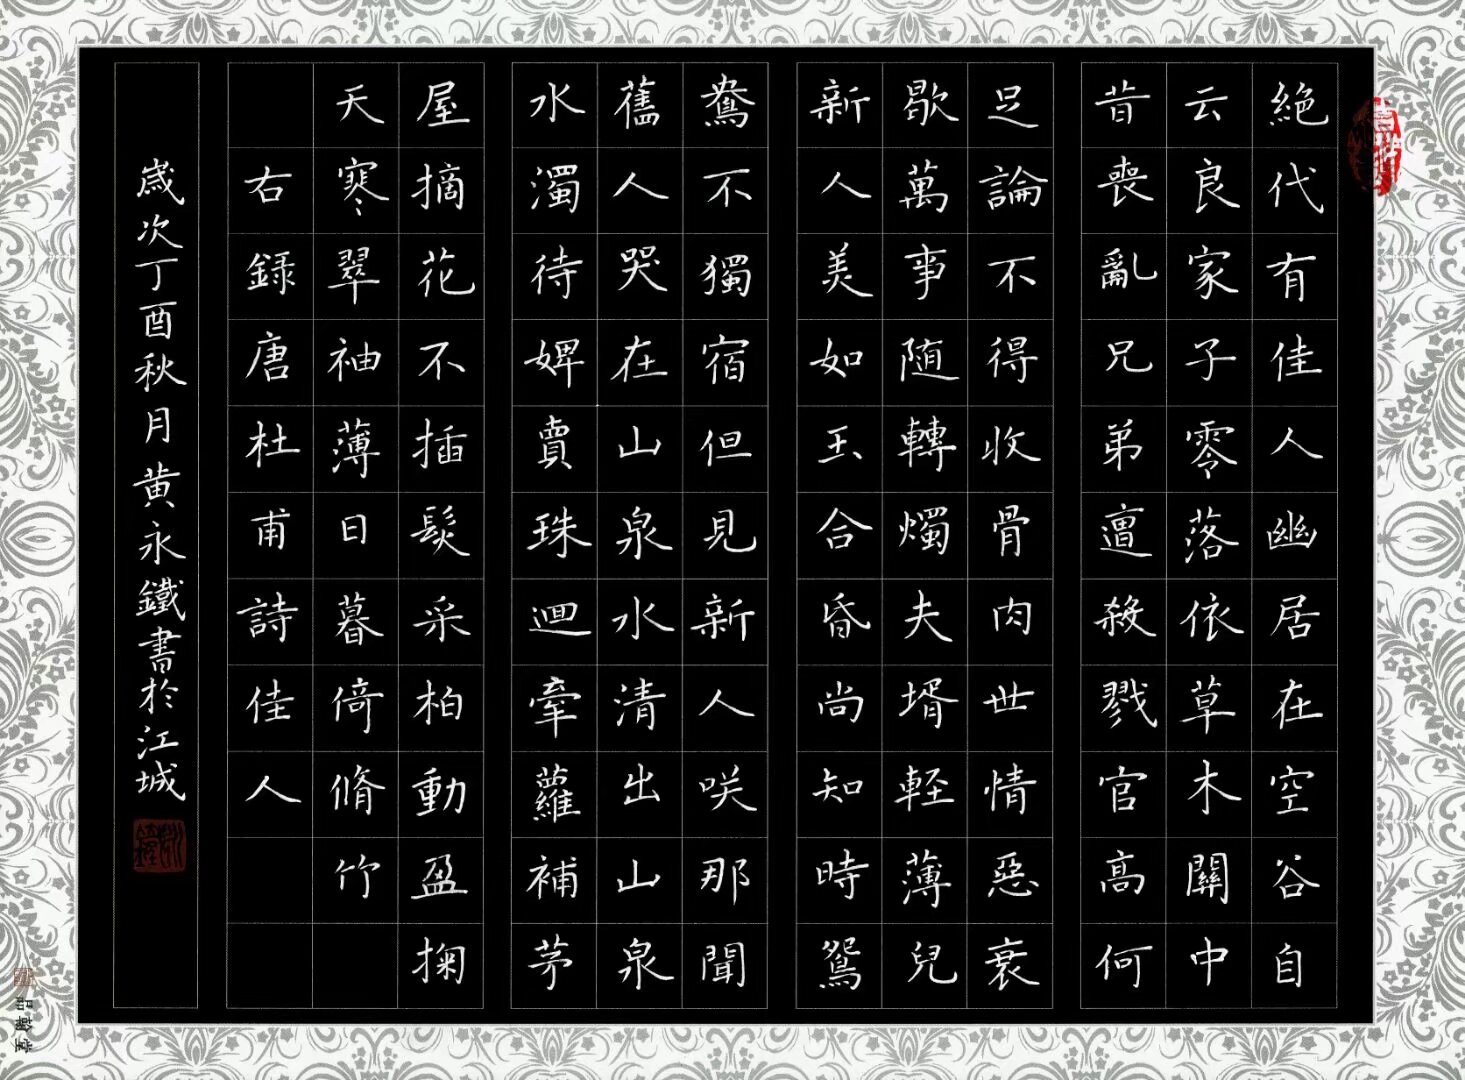 絶代有佳人幽居在空谷自
云良家子零落依草木關中
昔喪亂兄弟遭殺戮官高何
足論不得收骨肉世情惡衰
歇萬事随轉燭夫壻軽薄兒
新人美如玉合昏尚知時鴛
鴦不獨宿但見新人咲那聞
舊人哭在山泉水清出山泉
水濁待婢賣珠迴牽蘿補茅
屋摘花不插髮采柏動盈掬
天寒翠袖薄日暮倚脩竹
右録唐杜甫詩佳人
歲次丁酉秋月黄永鐵書於江城
品翰堂